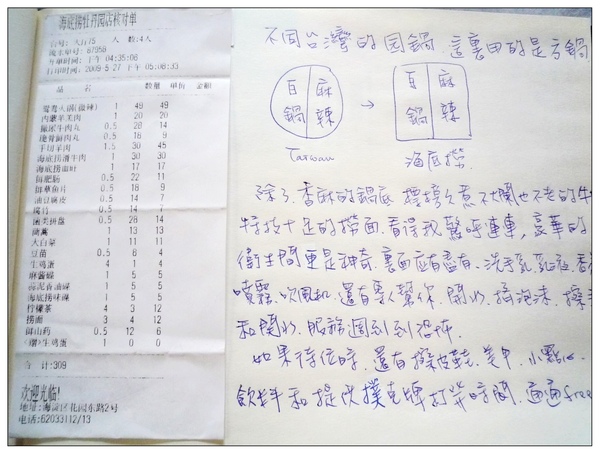 海底捞牡丹园店核对单
台号: 大厅75 人 数:4人
流水单号: 87958
开单时间: 下午 04:35:06
打印时间: 2009-5-27 下午 05:06:33
品 名 数量 单价 金额
鸳鸯火锅(微辣) 1 49 49
内蒙羊羔肉 1 20 20
撒尿牛肉丸 0.5 28 14
0.5 18 9
手切羊肉 1.5 30 45
海底捞滑牛肉 1 30 30
海底捞面叶 1 17 17
鲜肥肠 0.5 22 11
鲜草鱼片 0.5 18 9
油豆腐皮 0.5 14 7
腐竹 0.5 14 7
菌类拼盘 0.5 28 14
茼蒿 1 13 13
大白菜 1 11 11
豆苗 0.5 8 4
生鸡蛋 4 1 4
麻酱碟 1 5 5
蒜泥香油碟 1 5 5
海底捞味碟 1 5 5
柠檬茶 4 3 12
捞面 3 4 12
鲜山药 0.5 12 6
(赠)生鸡蛋 1 0 0
合 计:309
欢迎光临!
地址: 海淀区花园东路2号
电话: 62033112/13
不同台灣的圆鍋,這裏用的是方鍋
百鍋 麻辣 → 百鍋 麻辣
Taiwan 海底撈.
除了香麻的鍋底 煮不爛也不老的牛
特技十足的撈面,看得我驚呼連連,豪華的
衛生間更是神奇,裏面应有盡有,洗手乳,乳液,香
噴霧,吹風机,還有專人幫你 開水,擠泡沫,擦手
和開水,服務週到到
如果待位時,還有擦皮鞋,美甲,小點心
飲料和提供撲克牌打發時間,通通free